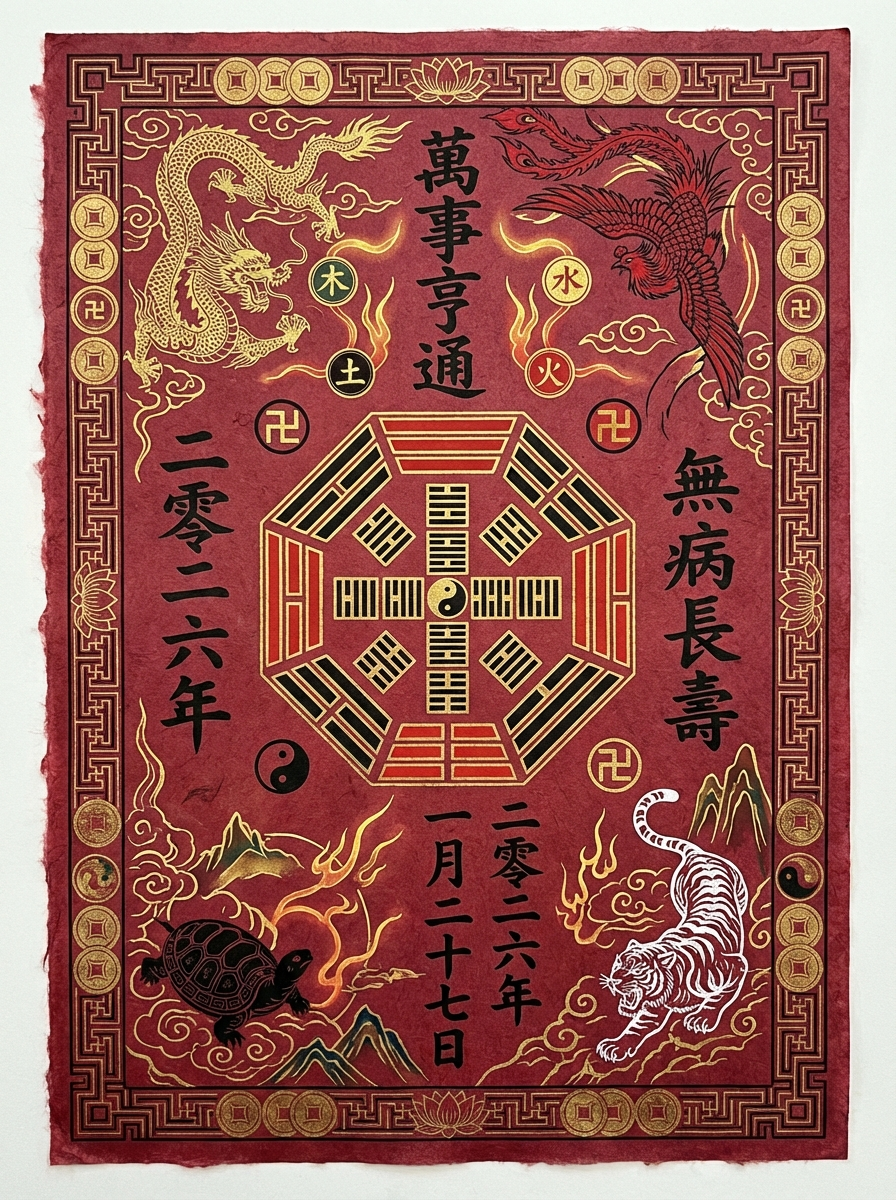 萬事亨通
木
水
土
火
卍
卍
無病長壽
二零二六年
卍
二零二六年
一月二十七日
卍
卍